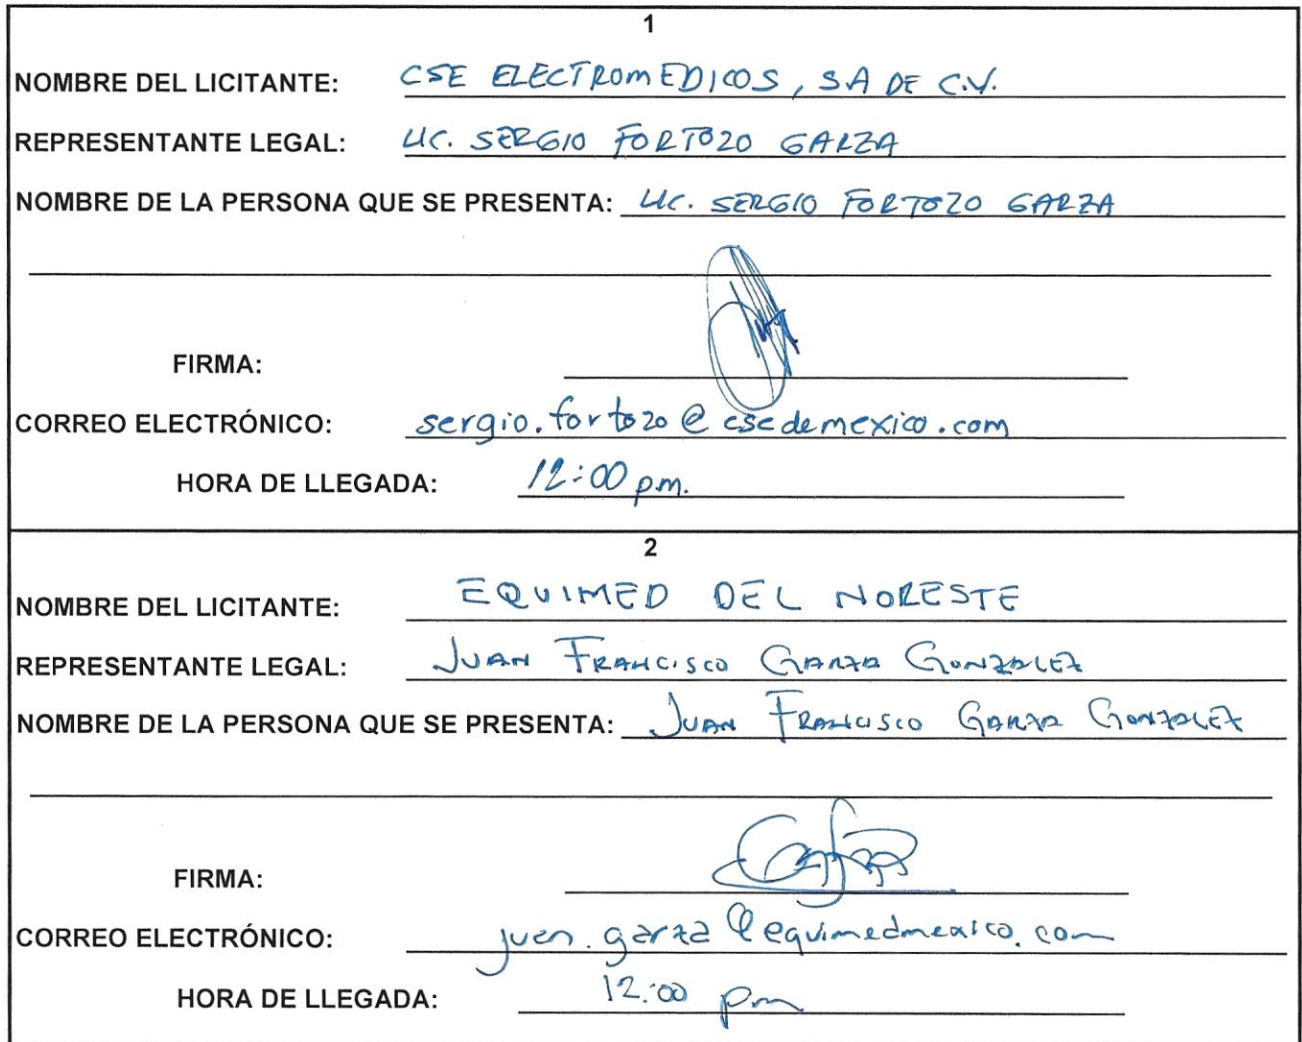 1
NOMBRE DEL LICITANTE: CSE ELECTROMEDICOS, SA DE C.V.
REPRESENTANTE LEGAL: LIC. SERGIO FORTOZO GARZA
NOMBRE DE LA PERSONA QUE SE PRESENTA: LIC. SERGIO FORTOZO GARZA
FIRMA:
CORREO ELECTRÓNICO: sergio.fortozo@csedemexico.com
HORA DE LLEGADA: 12:00 pm.
2
NOMBRE DEL LICITANTE: EQUIMED DEL NORESTE
REPRESENTANTE LEGAL: JUAN FRANCISCO GARZA GONZALEZ
NOMBRE DE LA PERSONA QUE SE PRESENTA: JUAN FRANCISCO GARZA GONZALEZ
FIRMA:
CORREO ELECTRÓNICO: juan.garza@equimedmexico.com
HORA DE LLEGADA: 12:00 pm